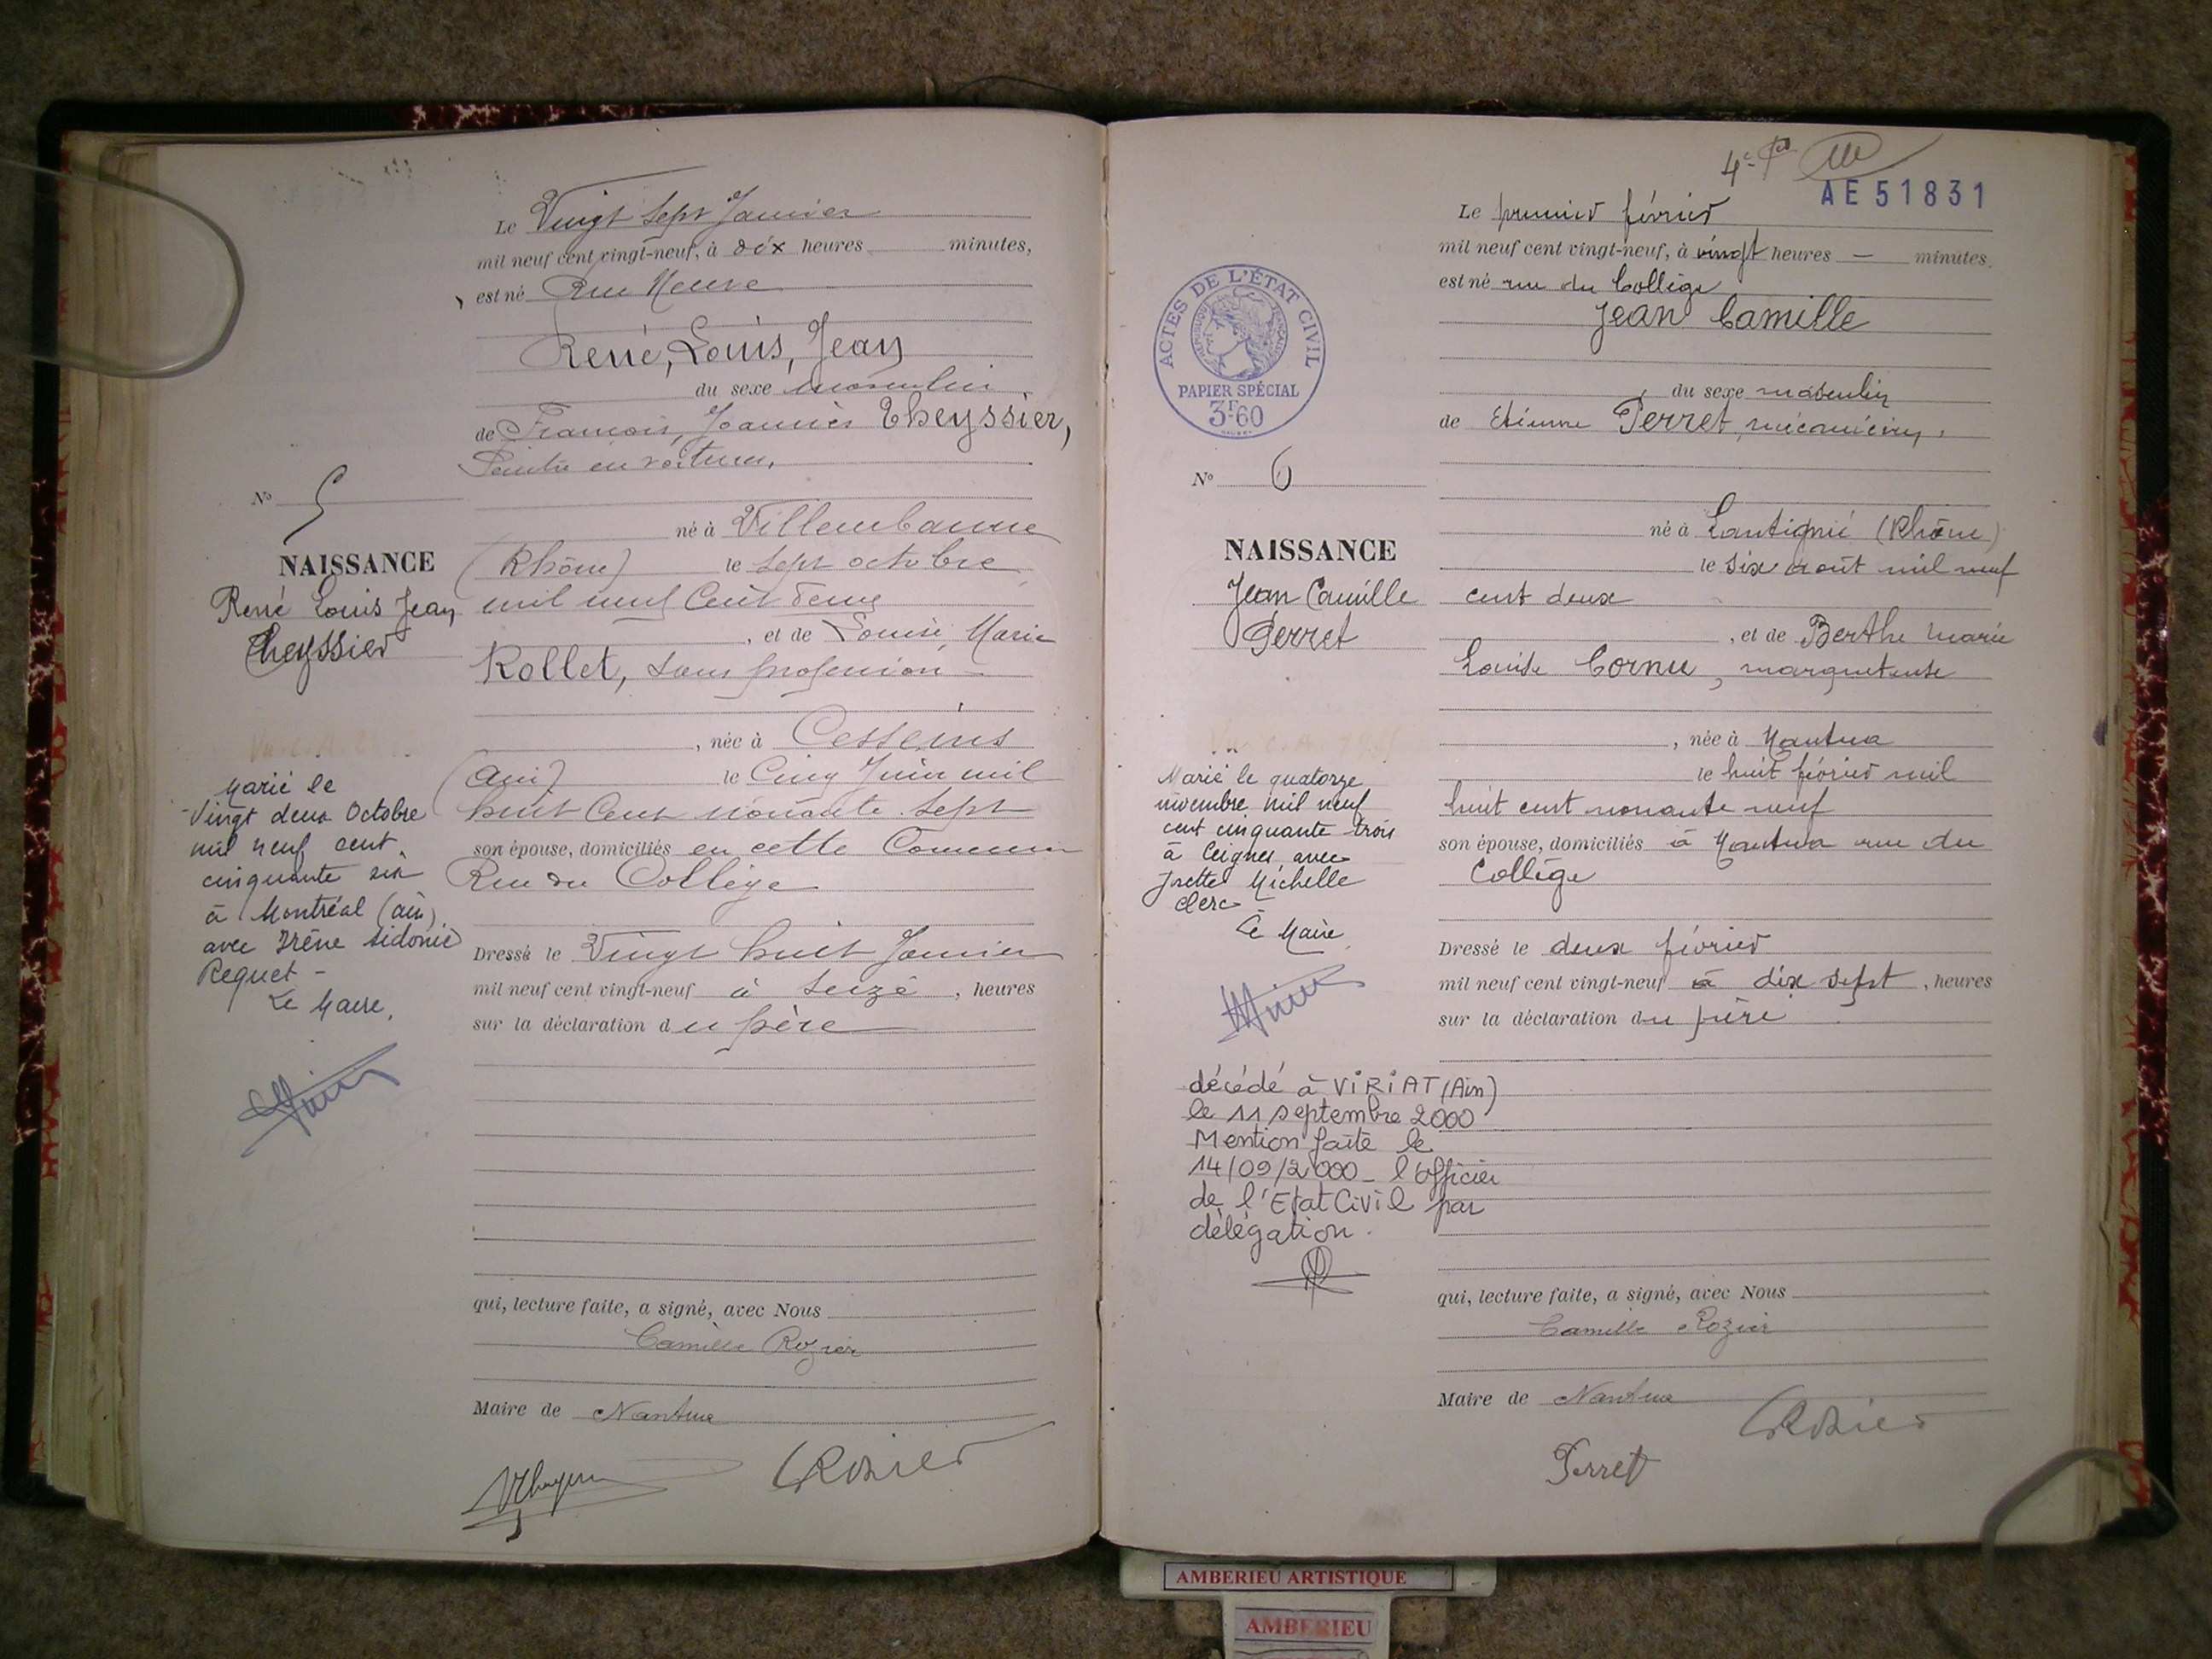 Le Vingt Sept Janvier
mil neuf cent vingt-neuf, à dix heures minutes,
est né Rue Neuve
René, Louis, Jean
du sexe masculin
de François, Joannès Theyssier,
Peintre en voitures,
N° 5
né à Villeurbanne
NAISSANCE
(Rhône) le sept octobre
René Louis Jean
mil neuf Cent deux
Theyssier
, et de Louise Marie
Rollet, sans profession
, née à Cesseins
(Ain) le Cinq Juin mil
huit Cent nonante sept
son épouse, domiciliés en cette Commune
Rue du Collège
Marié le
Vingt deux Octobre
mil neuf cent
cinquante six
à Montréal (ain)
avec Irène Sidonie
Requet -
Le Maire,
Dressé le Vingt huit Janvier
mil neuf cent vingt-neuf à seize, heures
sur la déclaration du père
qui, lecture faite, a signé, avec Nous
Camille Rozier
Maire de Nantua
CRozier
4e
AE 51831
Le premier février
mil neuf cent vingt-neuf, à vingt heures — minutes.
est né rue du Collège
Jean Camille
ACTES DE L'ÉTAT CIVIL
RÉPUBLIQUE FRANÇAISE
PAPIER SPÉCIAL
3F60
du sexe masculin
de Etienne Perret, mécanicien,
N° 6
né à Lantignié (Rhône)
NAISSANCE
le six août mil neuf
Jean Camille
cent deux
Perret
, et de Berthe Marie
Louise Cornu, marqueteuse
, née à Nantua
le huit février mil
huit cent nonante neuf
son épouse, domiciliés à Nantua rue du
Collège
Marié le quatorze
novembre mil neuf
cent cinquante trois
à Ceignes avec
Josette Michelle
Clerc
Le Maire
Dressé le deux février
mil neuf cent vingt-neuf à dix sept, heures
sur la déclaration du père
décédé à VIRIAT (Ain)
le 11 septembre 2000
Mention faite le
14/09/2000 - l'officier
de l'Etat Civil par
délégation.
qui, lecture faite, a signé, avec Nous
Camille Rozier
Maire de Nantua
CRozier
Perret
AMBERIEU ARTISTIQUE
AMBERIEU